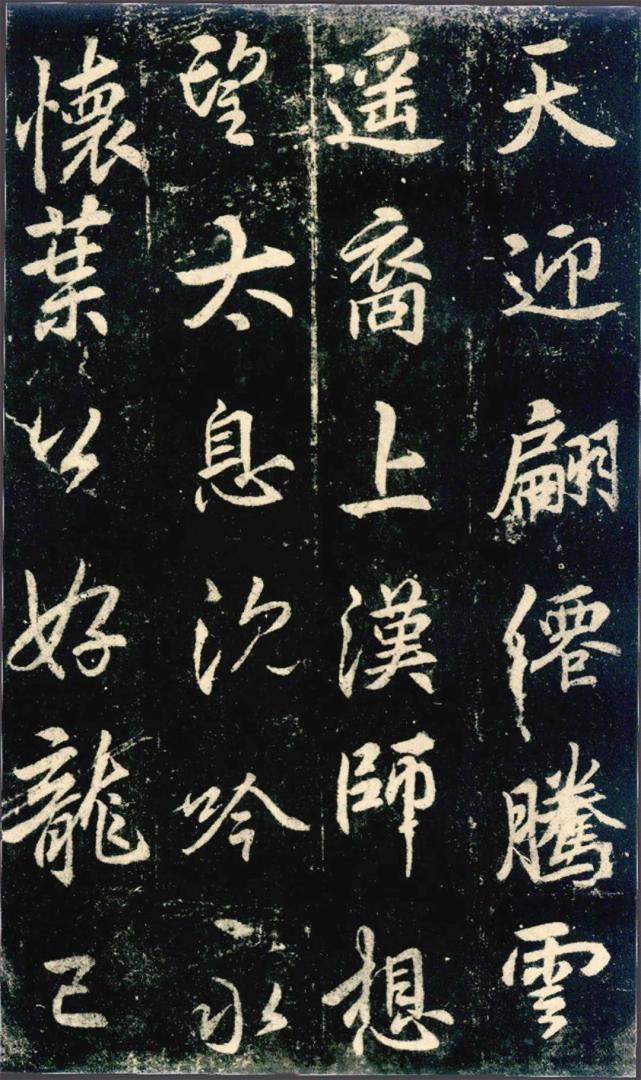 天迎翩僊騰雲
遥裔上漢師想
望太息沈吟永
懷葉公好龍已